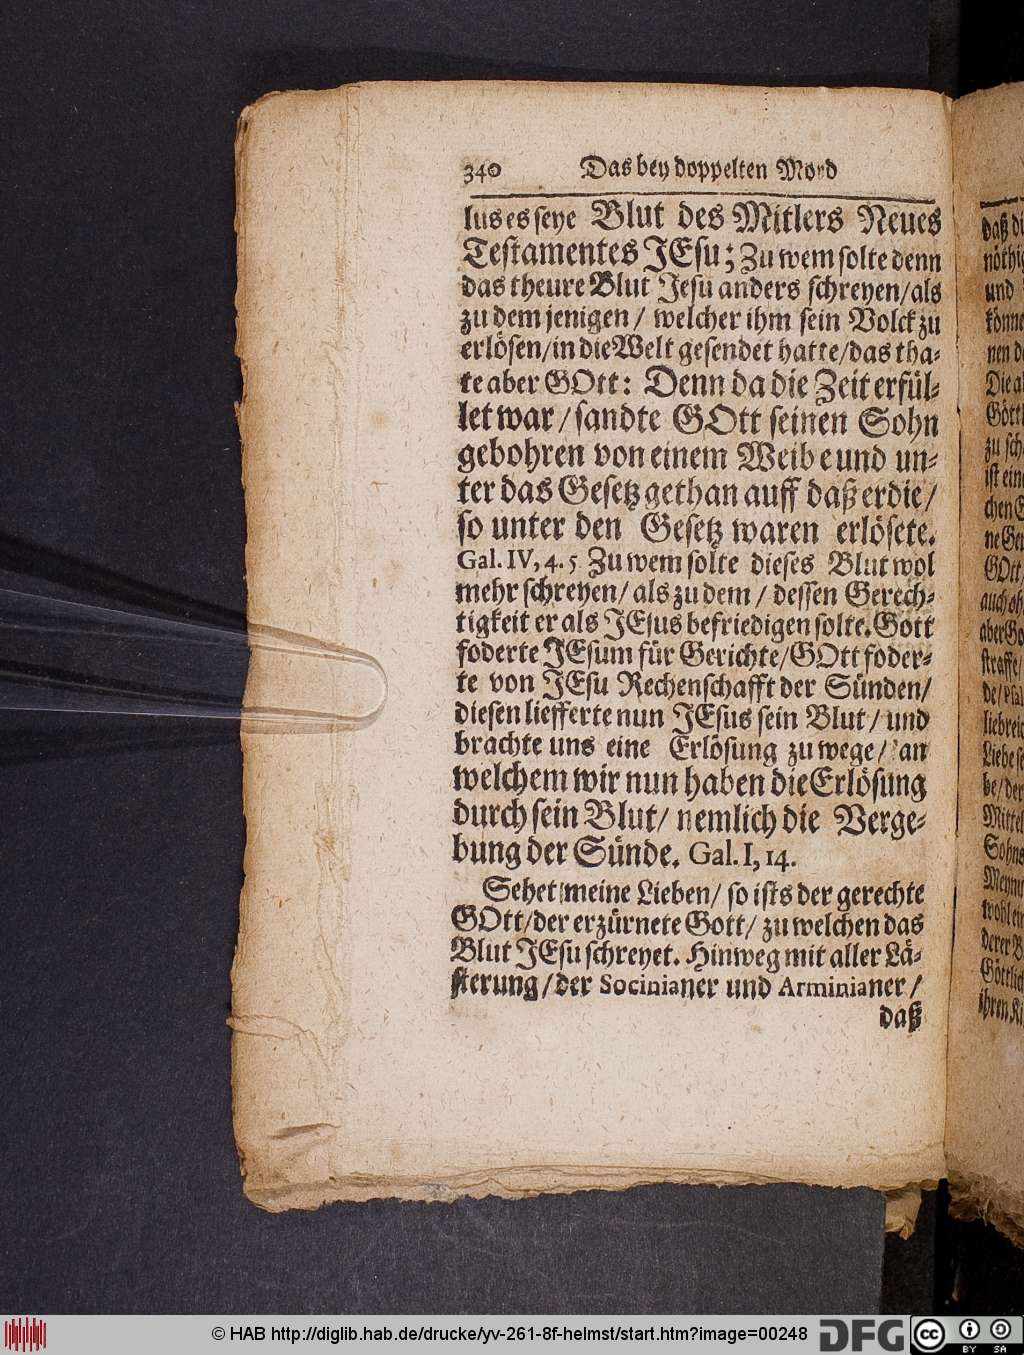 340 Das bey doppelten Mord
lus es seye Blut des Mitlers Neues
Testamentes JEsu; Zu wem solte denn
das theure Blut Jesu anders schreyen/als
zu dem jenigen / welcher ihm sein Volck zu
erlösen/in die Welt gesendet hatte/das tha-
te aber GOtt: Denn da die Zeit erfül-
let war / sandte GOtt seinen Sohn
gebohren von einem Weibe und un-
ter das Gesetz gethan auff daß er die /
so unter den Gesetz waren erlösete.
Gal. IV, 4. 5 Zu wem solte dieses Blut wol
mehr schreyen/ als zu dem / dessen Gerech-
tigkeit er als JEsus befriedigen solte. Gott
foderte JEsum für Gerichte/GOtt foder-
te von JEsu Rechenschafft der Sünden/
diesen liefferte nun JEsus sein Blut / und
brachte uns eine Erlösung zu wege / an
welchem wir nun haben die Erlösung
durch sein Blut/ nemlich die Verge-
bung der Sünde. Gal. I, 14.
Sehet meine Lieben/ so ists der gerechte
GOtt/der erzürnete Gott/ zu welchen das
Blut JEsu schreyet. Hinweg mit aller Lä-
sterung/der Socinianer und Arminianer /
daß
daß di
nöthig
und
könne
nen d
Die al
Göttl
zu sch
ist ein
chen E
ne Ger
GOtt/
auch oh
aber Go
straffe/
de/
liebreic
Liebe se
be/der
Mittel
Sohns
wohl ein
derer B
Göttlich
ihren Ki
© HAB http://diglib.hab.de/drucke/yv-261-8f-helmst/start.htm?image=00248
DFG
cc BY SA